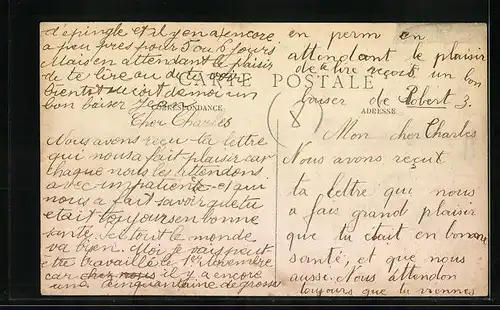 d'épingle et il y en a encore
a peu près pour 5 ou 6 jours
Mais en attendant le plaisir
de te lire ou de te voir
bientôt reçoit de moi un
bon baiser Jean
CARTE POSTALE
CORRESPONDANCE
ADRESSE
Cher Charles
Nous avons reçu ta lettre
qui nous a fait plaisir car
chaque nous les attendons
avec impatience et qui
nous a fait savoir que tu
etait toujours en bonne
santé. Ici tout le monde
va bien. Moi je vais peut
être travaillé le 1er novembre
car chez nous il y a encore
une cinquantaine de grosses
en perm en
attendant le plaisir
de te lire reçois un bon
baiser de Robert 3.
Mon cher Charles
Nous avons reçut
ta lettre qui nous
a fais grand plaisir
que tu était en bonne
santé, et que nous
aussi. Nous attendon
toujours que tu viennes